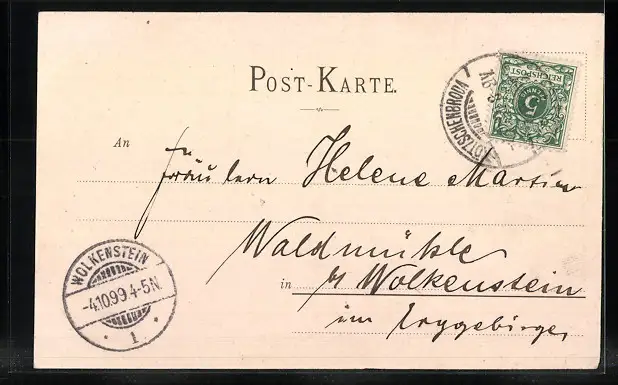 POST-KARTE.
KÖTZSCHENBRODA
REICHSPOST
5
An
Fräulein Helene Martin
Waldmühle
in b/ Wolkenstein
im Erzgebirge,
WOLKENSTEIN
-4.10.99.4-5N.
1